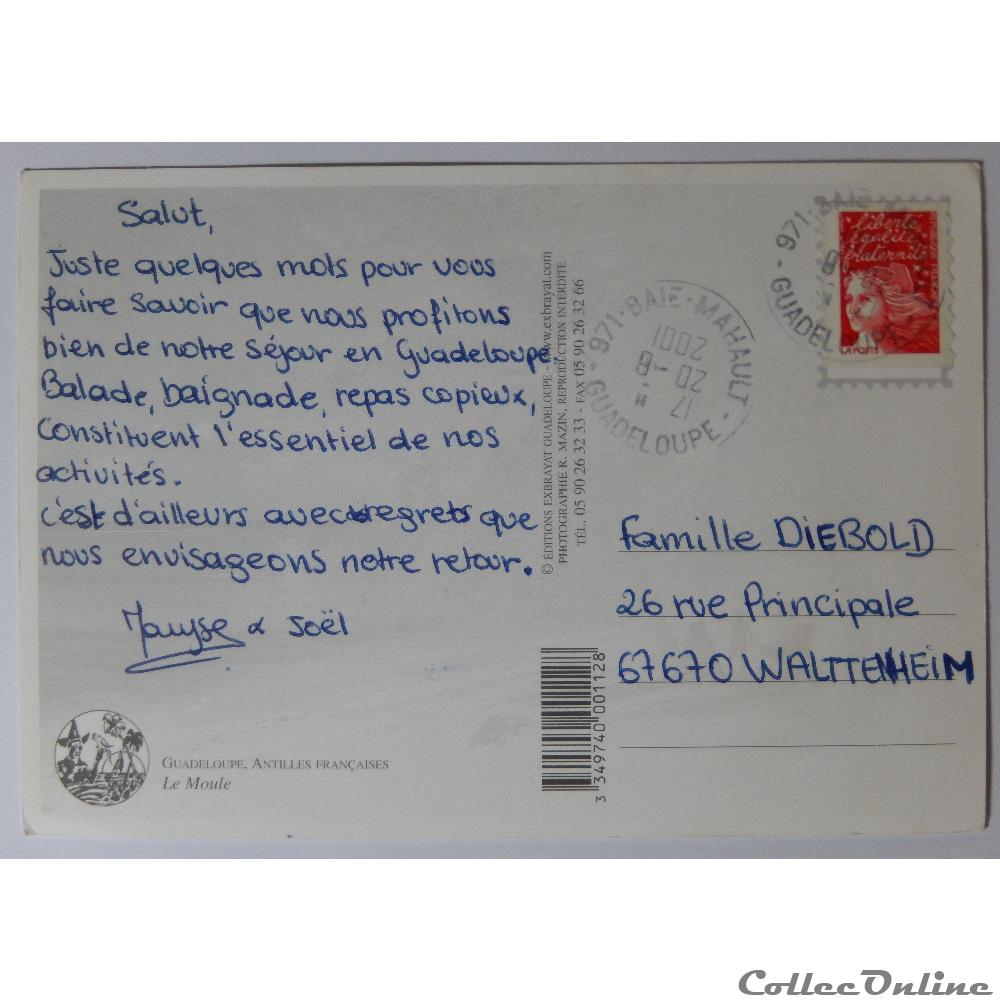 Salut,
Juste quelques mots pour vous
faire savoir que nous profitons
bien de notre séjour en Guadeloupe.
Balade, baignade, repas copieux,
Constituent l'essentiel de nos
activités.
C'est d'ailleurs avec regrets que
nous envisageons notre retour.
& Joël
GUADELOUPE, ANTILLES FRANÇAISES
Le Moule
© ÉDITIONS EXBRAYAT GUADELOUPE - www.exbrayat.com
PHOTOGRAPHIE R. MAZIN, REPRODUCTION INTERDITE
TÉL. 05 90 26 32 33 - FAX 05 90 26 32 66
3 349740 001128
971-BAIE-MAHAULT -
GUADELOUPE -
2001
20
17
971-
GUADEL
liberté
égalité
fraternité
LA POSTE
famille DIEBOLD
26 rue Principale
67670 WALTTENHEIM
CollecOnline